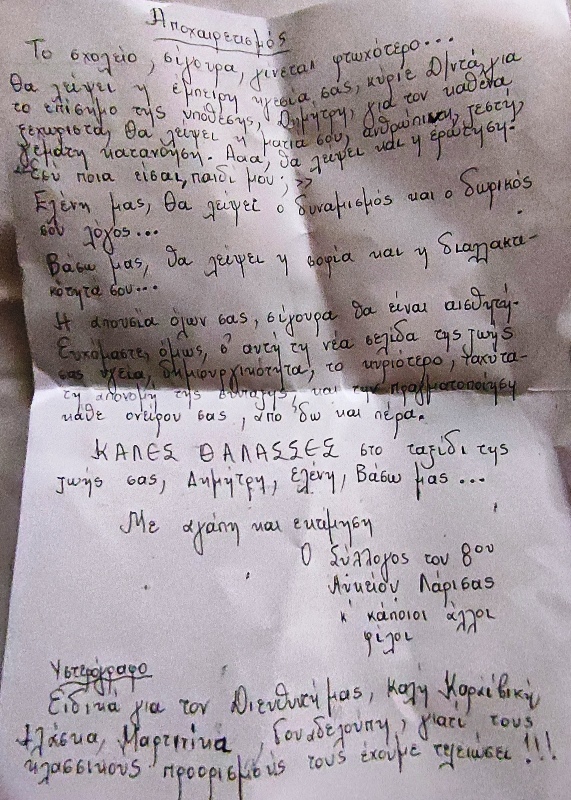 Αποχαιρετισμός
Το σχολείο, σίγουρα, γίνεται φτωχότερο...
Θα λείψει η έμπειρη ηγεσία σας, κύριε Ντντάγια
το επίσημο της υπόθεσης, Δημήτρη, για τον καθένα
ξεχωριστά, θα λείψει η ματιά σου, ανθρώπινη, ζεστή,
γεμάτη κατανόηση. Ααα, θα λείψει και η ερώτηση:
"Εσύ ποια είσαι, παιδί μου; »
Ελένη μας, θα λείψει ο δυναμισμός και ο δωρικός
σου λόγος...
Βάσω μας, θα λείψει η σοφία και η διαλλακτι-
κότητα σου...
Η απουσία όλων σας, σίγουρα θα είναι αισθητή.
Ευχόμαστε, όμως, σ' αυτή τη νέα σελίδα της ζωής
σας υγεία, δημιουργικότητα, το κυριότερο, ταχύτα-
τη απονομή της σύνταξης, και την πραγματοποίηση
κάθε ονείρου σας, από 'δω και πέρα.
ΚΑΛΕΣ ΘΑΛΑΣΣΕΣ στο ταξίδι της
ζωής σας, Δημήτρη, Ελένη, Βάσω μας...
Με αγάπη και εκτίμηση
Ο Σύλλογος του 8ου
Λυκείου Λάρισας
κ' κάποιοι άλλοι
φίλοι
Υστερόγραφο
Ειδικά για τον Διευθυντή μας, Καλή Καραϊβική,
Αλάσκα, Μαρτινίκα, Γουαδελούπη, γιατί τους
κλασσικούς προορισμούς τους έχουμε τελειώσει!!!